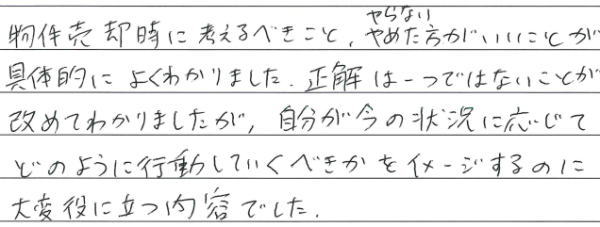 やらない
物件売却時に考えるべきこと、やめた方がいいことが
具体的によくわかりました。正解は一つではないことが
改めてわかりましたが、自分が今の状況に応じて
どのように行動していくべきかをイメージするのに
大変役に立つ内容でした。